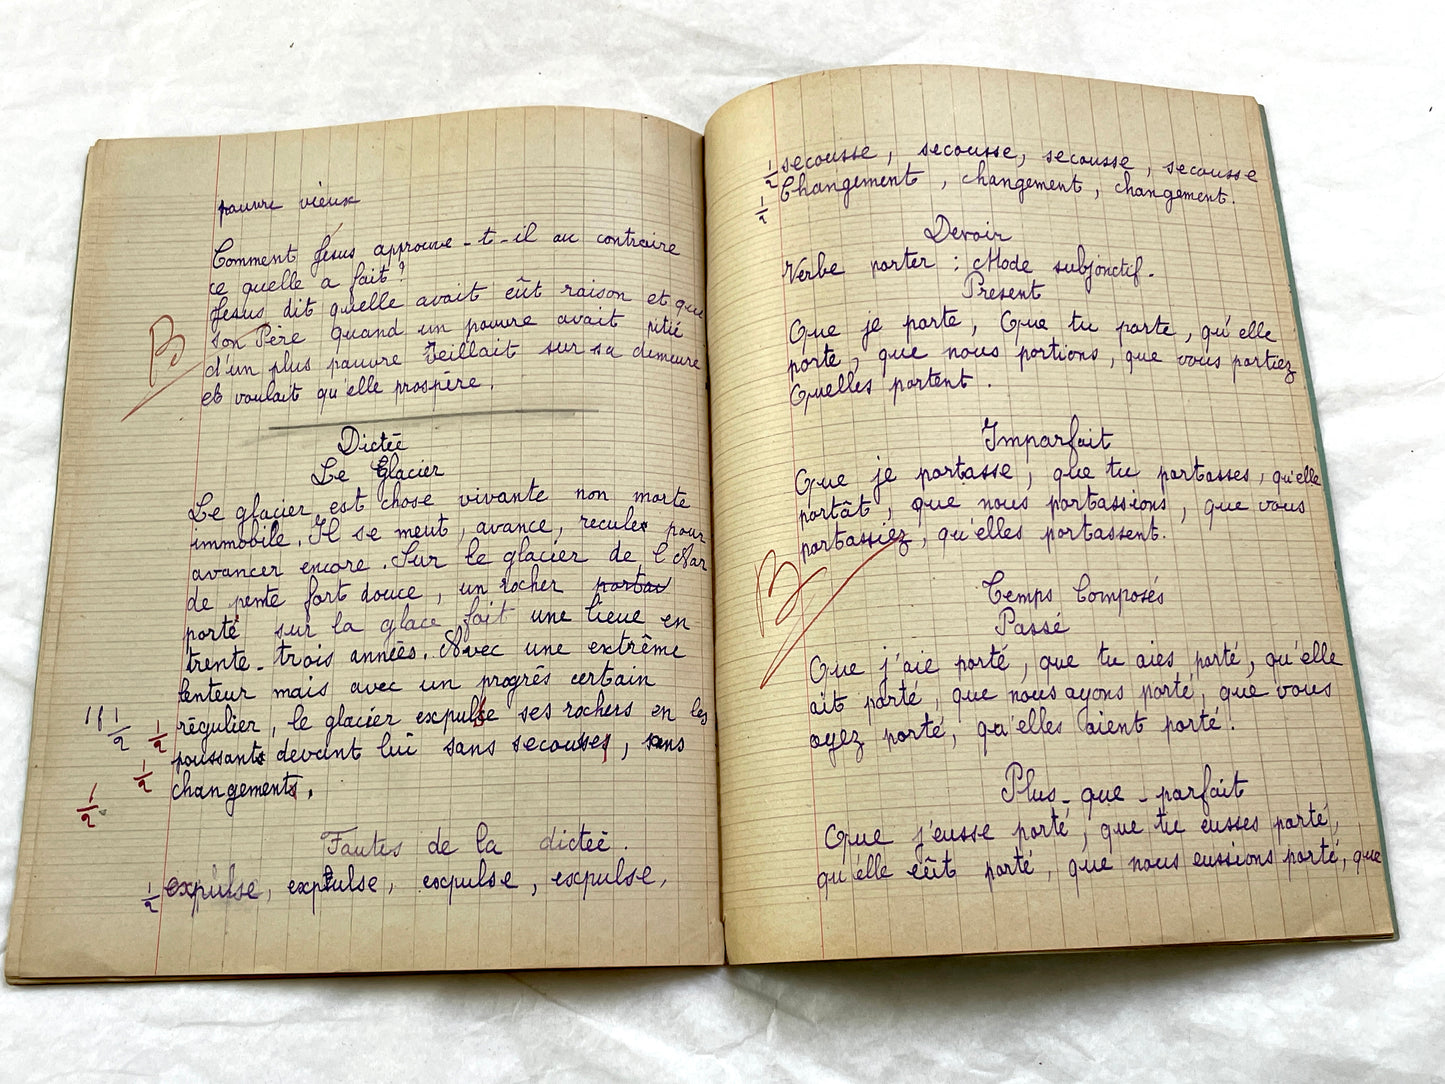 pauvre vieux
Comment Jésus approuve-t-il au contraire
ce quelle a fait?
Jesus dit quelle avait eût raison et que
son Père quand un pauvre avait pitié
d'un plus pauvre Veillait sur sa demeure
et voulait qu'elle prospère.
B
Dictée
Le Glacier
Le glacier est chose vivante non morte
immobile. Il se meut, avance, recule pour
avancer encore. Sur le glacier de l'Aar
de pente fort douce, un rocher
porté sur la glace fait une lieue en
trente-trois années. Avec une extrême
lenteur mais avec un progrès certain
régulier, le glacier expulse ses rochers en les
poussants devant lui sans secousses, sans
changements.
1/2
1/2
1/2
1/2
Fautes de la dictée.
1/2 expulse, expulse, expulse, expulse,
1/2 secousse, secousse, secousse, secousse
1/2 Changement, changement, changement.
Devoir
Verbe porter : Mode subjonctif.
Present
Que je porte, Que tu porte, qu'elle
porte, que nous portions, que vous portiez
Quelles portent.
Imparfait
Que je portasse, que tu portasses, qu'elle
portât, que nous portassions, que vous
portassiez, qu'elles portassent.
B
Temps Composés
Passé
Que j'aie porté, que tu aies porté, qu'elle
ait porté, que nous ayons porté, que vous
ayez porté, qu'elles aient porté.
Plus-que-parfait
Que j'eusse porté, que tu eusses porté,
qu'elle eût porté, que nous eussions porté, que